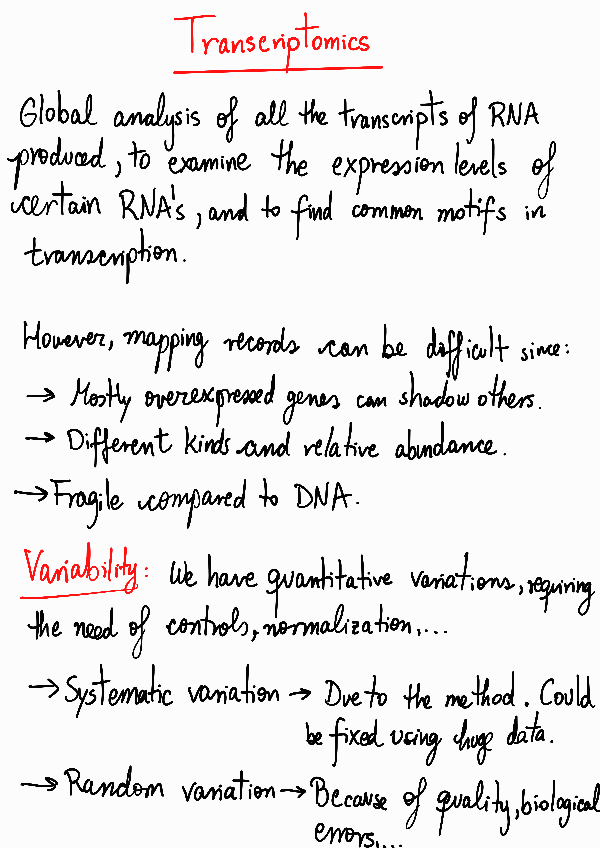 Transcriptomics
Global analysis of all the transcripts of RNA
produced, to examine the expression levels of
certain RNA's, and to find common motifs in
transcription.
However, mapping records can be difficult since:
→ Mostly overexpressed genes can shadow others.
→ Different kinds and relative abundance.
→ Fragile compared to DNA.
Variability: We have quantitative variations, requiring
the need of controls, normalization,...
→ Systematic variation → Due to the method. Could
be fixed using huge data.
→ Random variation → Because of quality, biological
errors,...